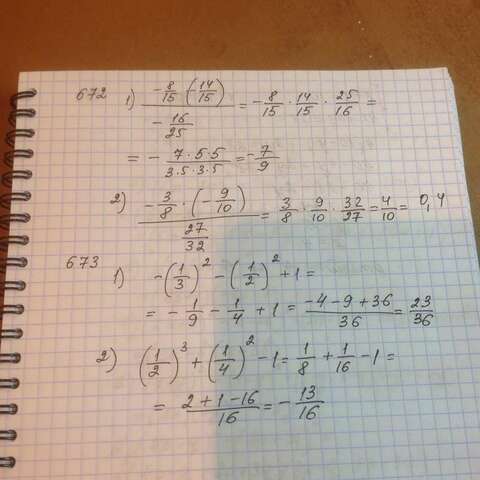 672 1) (-8/15 (-14/15))/(-16/25) = -8/15 · 14/15 · 25/16 =
= - (7·5·5)/(3·5·3·5) = -7/9
2) (-3/8 · (-9/10))/(27/32) = 3/8 · 9/10 · 32/27 = 4/10 = 0,4
673 1) -(1/3)² - (1/2)² + 1 =
= -1/9 - 1/4 + 1 = (-4-9+36)/36 = 23/36
2) (1/2)³ + (1/4)² - 1 = 1/8 + 1/16 - 1 =
= (2+1-16)/16 = -13/16